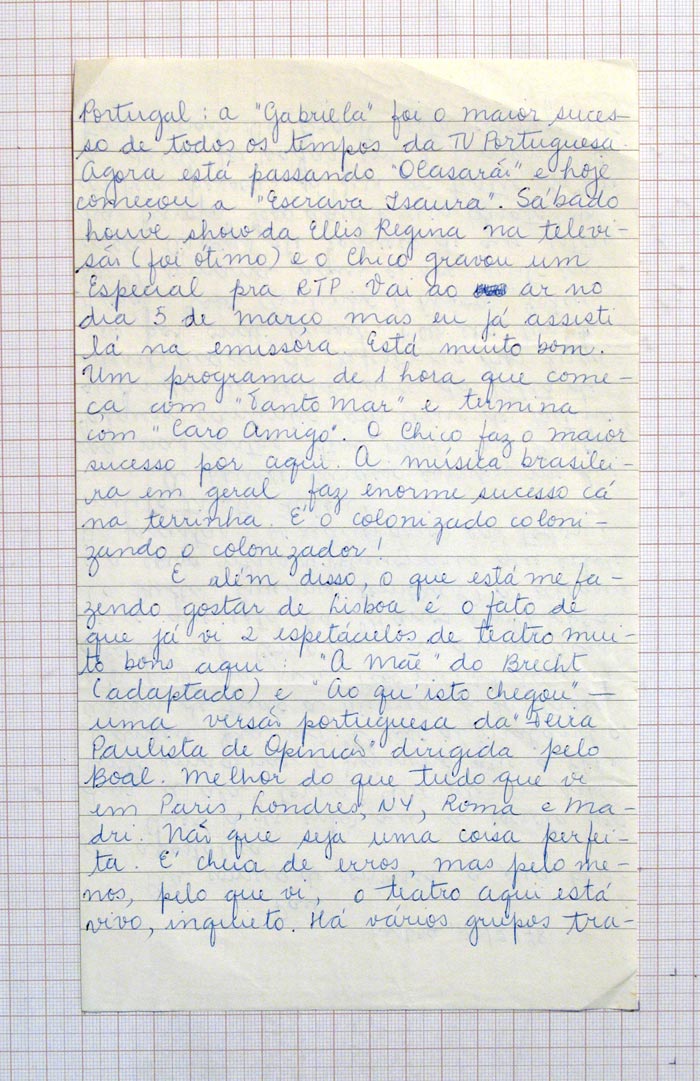 Portugal: a "Gabriela" foi o maior suces-
so de todos os tempos da TV Portuguesa.
Agora está passando "O Casarão" e hoje
começou a "Escrava Isaura". Sábado
houve show da Ellis Regina na televi-
são (foi ótimo) e o Chico gravou um
Especial pra RTP. Vai ao ar no
dia 5 de março mas eu já assisti
lá na emissôra. Está muito bom.
Um programa de 1 hora que come-
ça com "Tanto Mar" e termina
com "Caro Amigo". O Chico faz o maior
sucesso por aqui. A música brasilei-
ra em geral faz enorme sucesso cá
na terrinha. É o colonizado coloni-
zando o colonizador!
E além disso, o que está me fa-
zendo gostar de Lisboa é o fato de
que já vi 2 espetáculos de teatro mui-
to bons aqui: "A mãe" do Brecht
(adaptado) e "Ao qu'isto chegou" —
uma versão portuguesa da "Feira
Paulista de Opinião" dirigida pelo
Boal. Melhor do que tudo que vi
em Paris, Londres, NY, Roma e Ma-
dri. Não que seja uma coisa perfei-
ta. É cheia de erros, mas pelo me-
nos, pelo que vi, o teatro aqui está
vivo, inquieto. Há vários grupos tra-